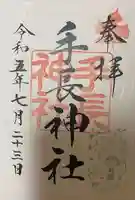 奉拝
手長神社
令和五年七月二十三日
手長
神社